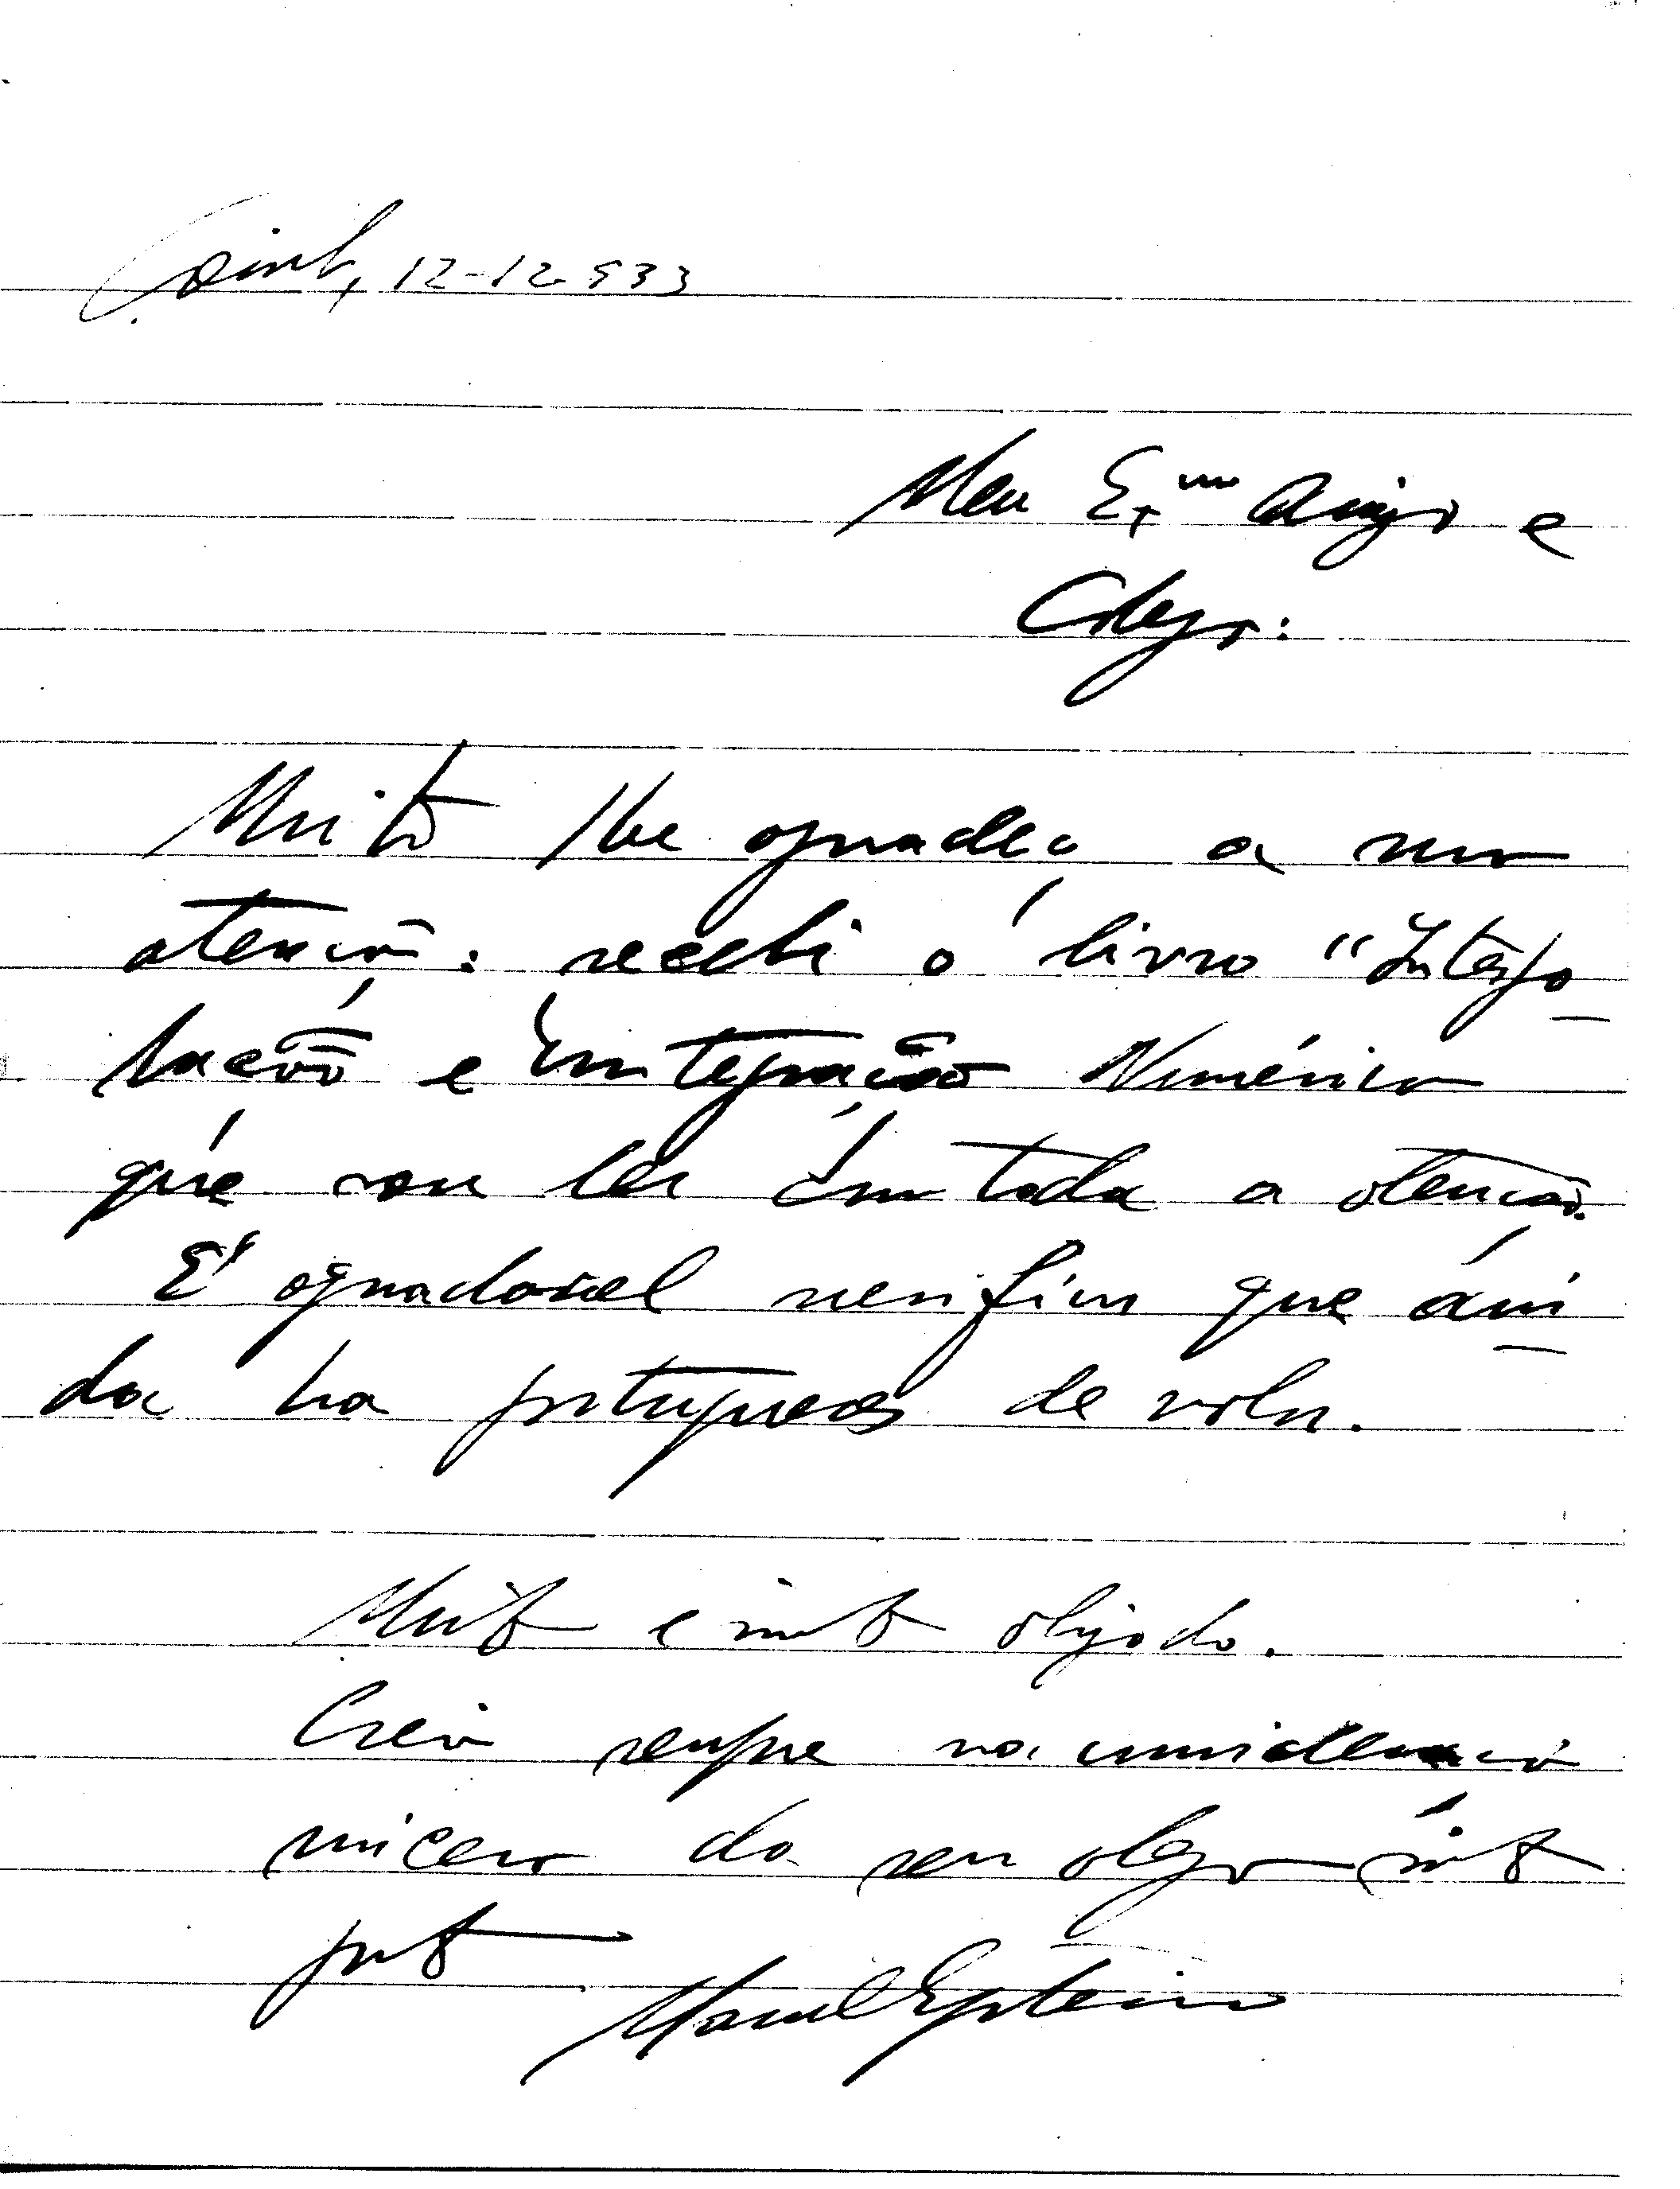 Coimbra, 12-12-933
Meu Exmo Amigo e
Colega:
Muito lhe agradeço a sua
atenção: recebi o livro "Interpo
lação e integração Numérica
que vou ler com toda a atenção.
É agradavel verificar que ain
da ha portugueses de valor.
Muito e muito obrigado.
Creia sempre na consideração
sincera do seu colega muito
grato
Manuel Esparteiro